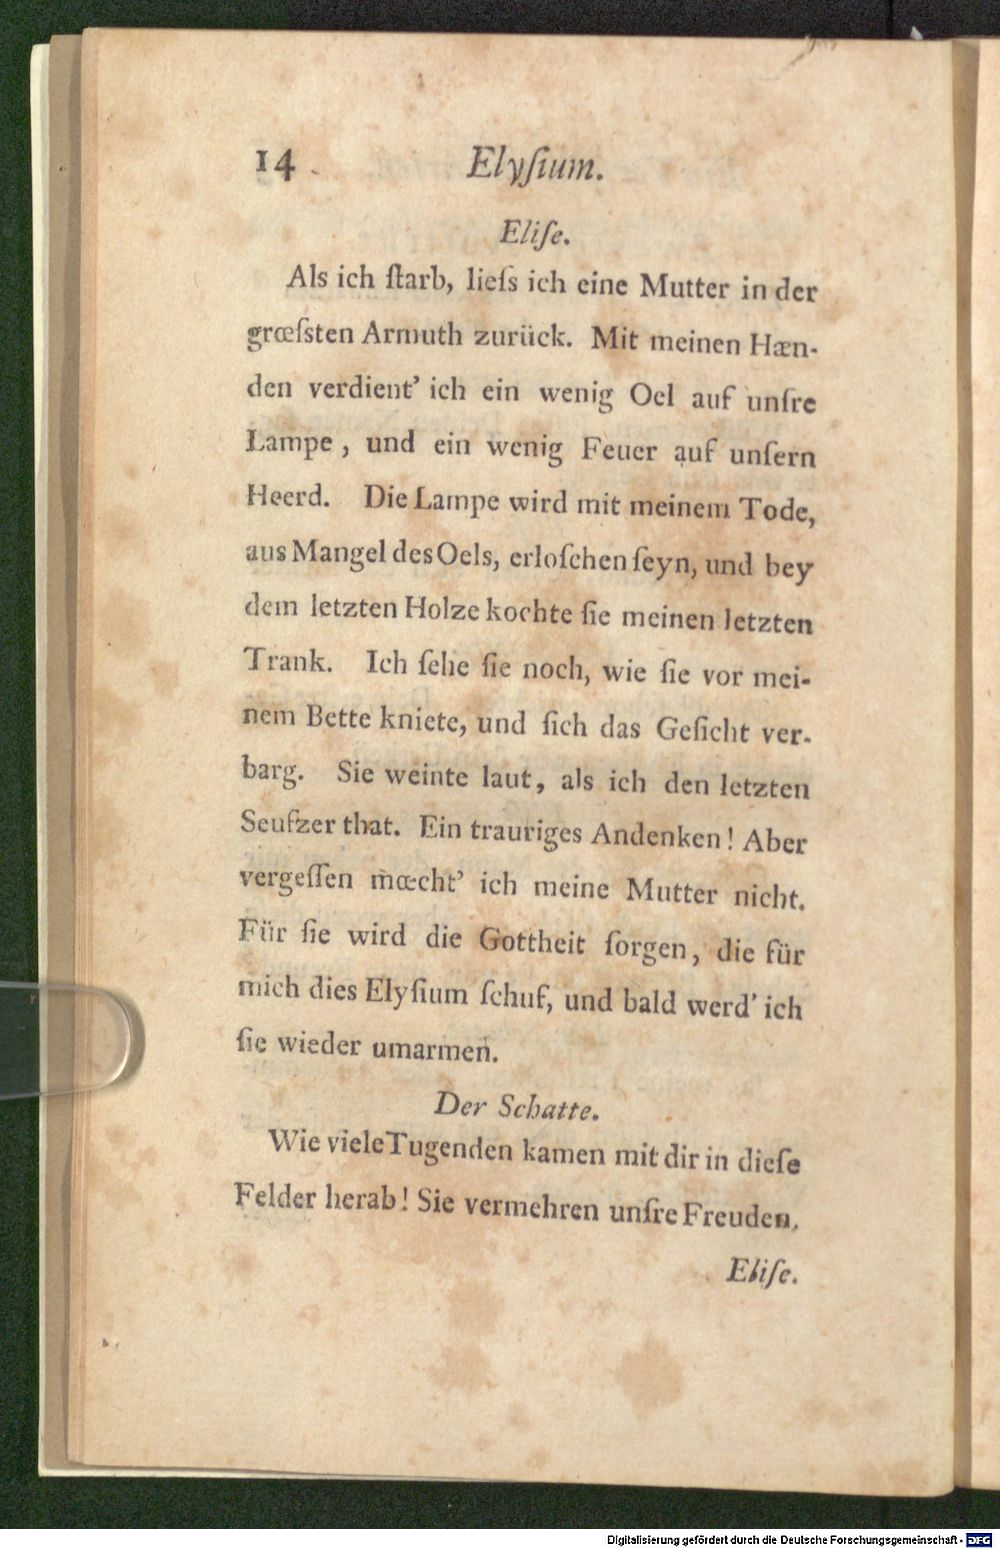 14 Elyſium.
Eliſe.
Als ich ſtarb, lieſs ich eine Mutter in der
grœſsten Armuth zurück. Mit meinen Hæn-
den verdient' ich ein wenig Oel auf unſre
Lampe, und ein wenig Feuer auf unſern
Heerd. Die Lampe wird mit meinem Tode,
aus Mangel des Oels, erloſchen ſeyn, und bey
dem letzten Holze kochte ſie meinen letzten
Trank. Ich ſehe ſie noch, wie ſie vor mei-
nem Bette kniete, und ſich das Geſicht ver-
barg. Sie weinte laut, als ich den letzten
Seufzer that. Ein trauriges Andenken! Aber
vergeſſen mœcht' ich meine Mutter nicht.
Für ſie wird die Gottheit ſorgen, die für
mich dies Elyſium ſchuf, und bald werd' ich
ſie wieder umarmen.
Der Schatte.
Wie viele Tugenden kamen mit dir in dieſe
Felder herab! Sie vermehren unſre Freuden.
Eliſe.
Digitalisierung gefördert durch die Deutsche Forschungsgemeinschaft - DFG